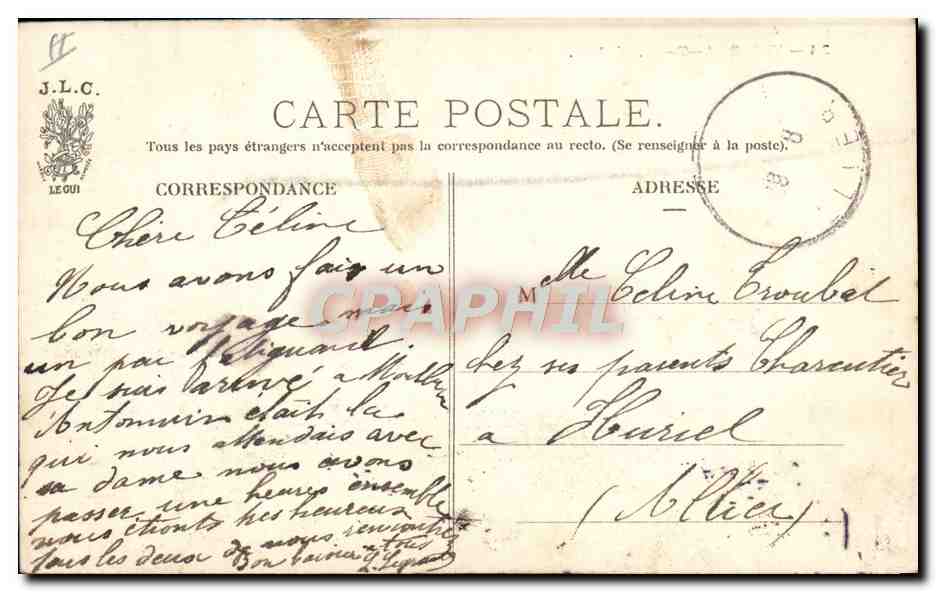 J.L.C.
LE GUI
CARTE POSTALE.
Tous les pays étrangers n'acceptent pas la correspondance au recto. (Se renseigner à la poste).
CORRESPONDANCE
ADRESSE
Chère Céline
Nous avons fais un
bon voyage mais
un peu fatiguant.
Je suis arrivé a
Antonnin était la
qui nous attendais avec
sa dame nous avons
passer une heures ensemble
nous étionts tres heureux
tous les deux de nous rencontrer
Bon baiser a tous
Melle Celine Troubat
chez ses parents Charcutier
a Huriel
(Allier)
CPAPHIL